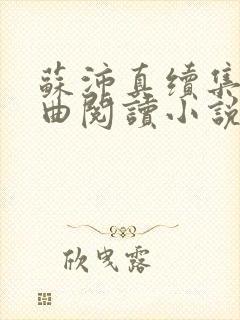 蘇沛真續集
曲閱讀小說
欣曳露